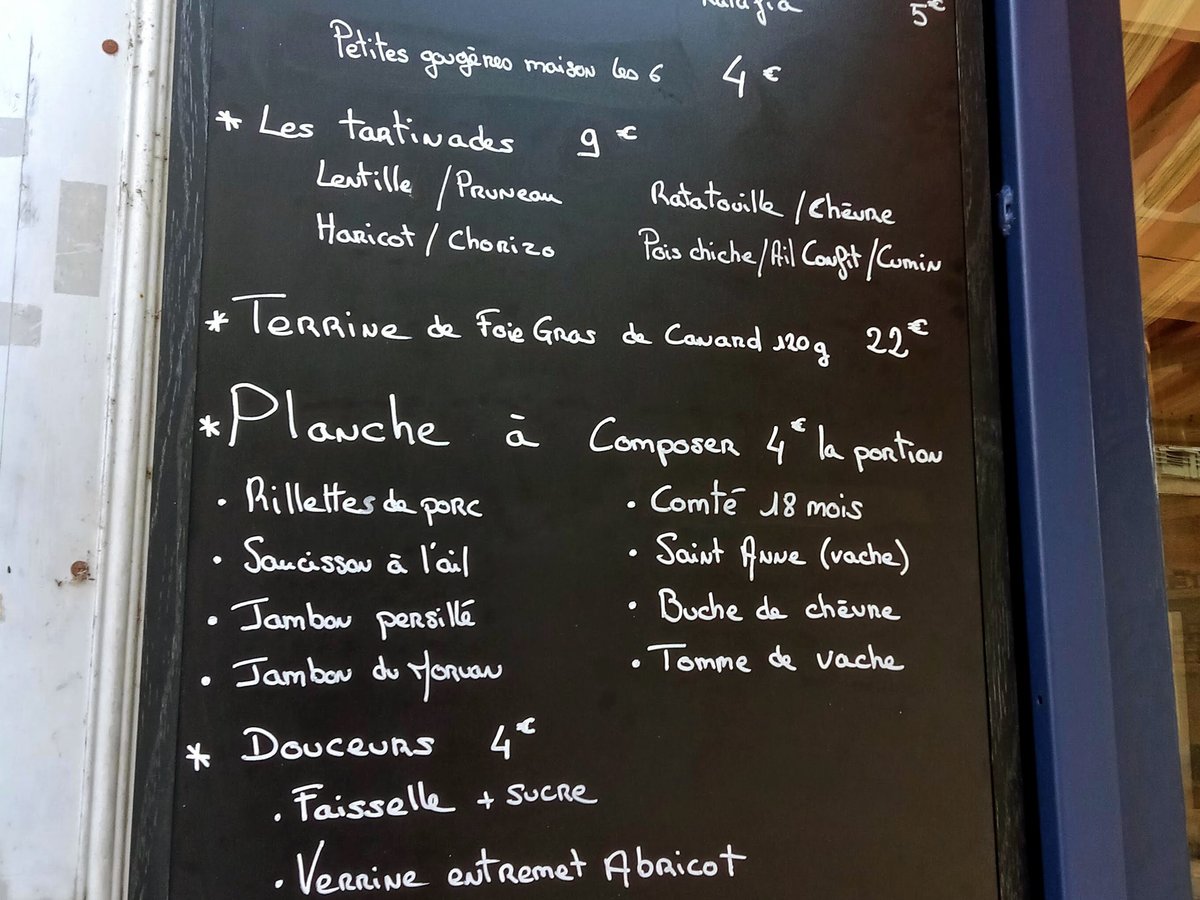 Ratafia 5€
Petites gougères maison les 6 4€
* Les tartinades 9€
Lentille / Pruneau Ratatouille / Chèvre
Haricot / Chorizo Pois chiche / Ail Confit / Cumin
* Terrine de Foie Gras de Canard 120g 22€
* Planche à Composer 4€ la portion
• Rillettes de porc • Comté 18 mois
• Saucisson à l'ail • Saint Anne (vache)
• Jambon persillé • Buche de chèvre
• Jambon du Morvan • Tomme de vache
* Douceurs 4€
• Faisselle + sucre
• Verrine entremet Abricot